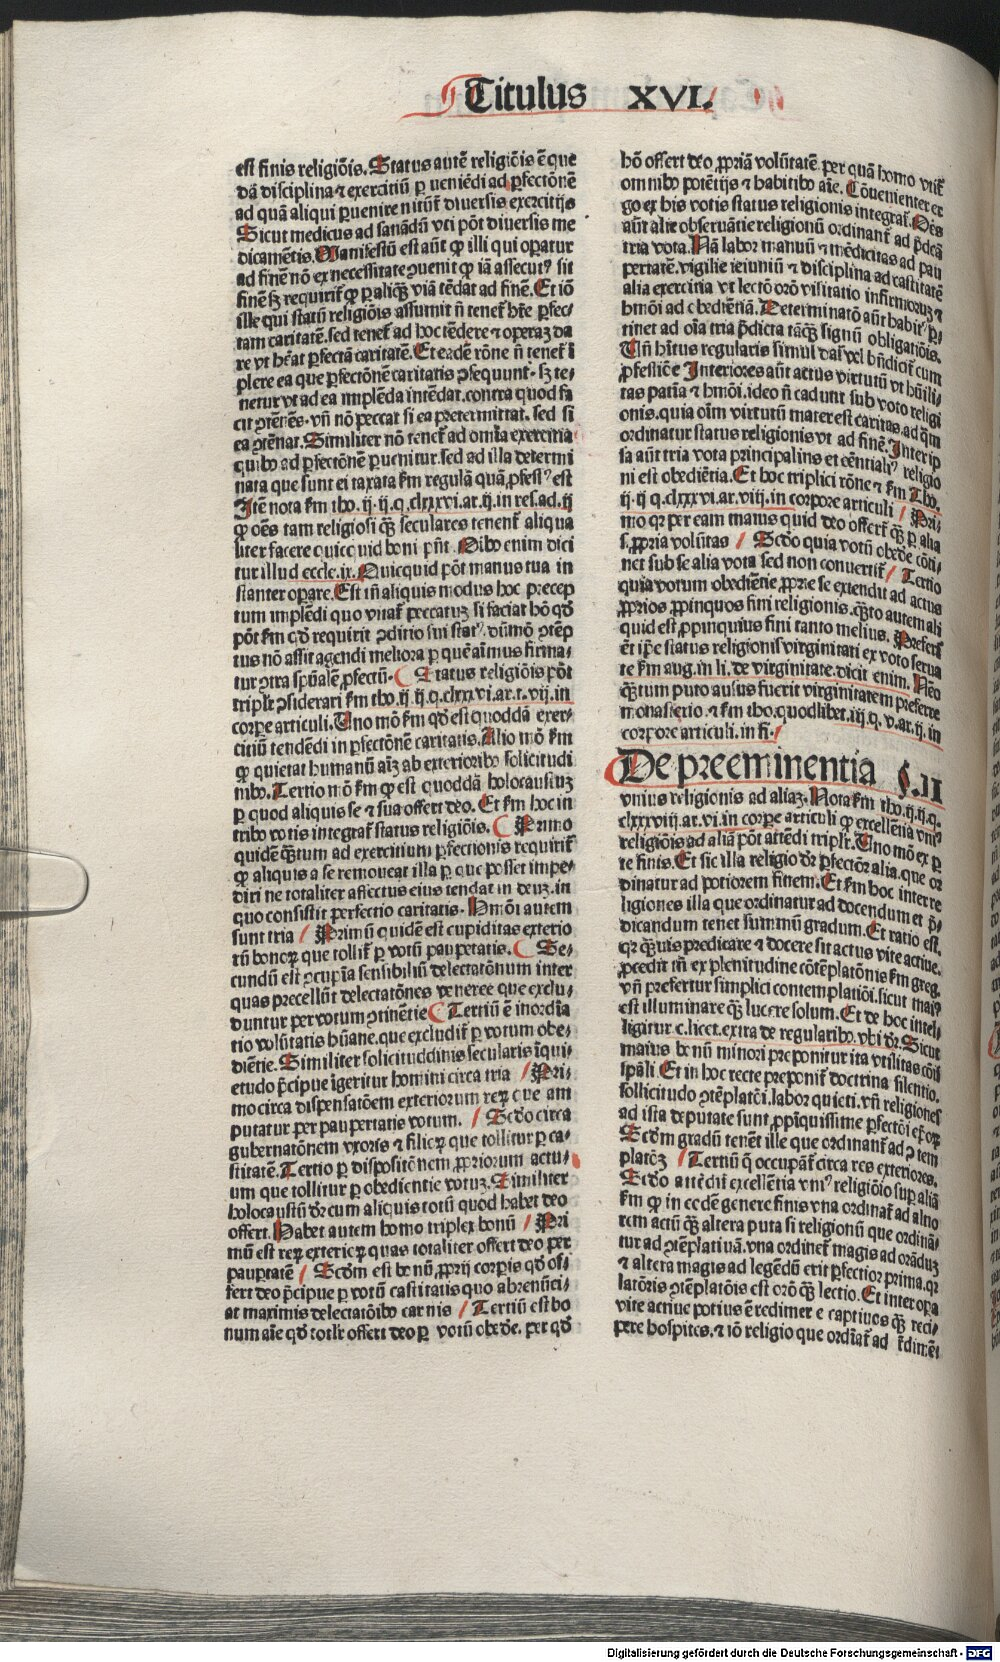 Titulus XVI.
est finis religiōis. Status autē religiōis ē que
dā disciplina ⁊ exercitiū ꝑueniēdi ad ꝑfectōnē
ad quā aliqui ꝑuenire nitūt᷑ diuersis exercitijs
Sicut medicus ad sanādū vti pōt diuersis me
dicamētis. Manifestū est aūt ꝙ illi qui oꝑatur
ad finē nō ex necessitate ꝯuenit ꝙ iā assecutꝰ sit
finē sꝫ requirit᷑ ꝙ ꝑ aliquā viā tēdat ad finē. Et iō
ille qui statū religiōis assumit ñ tenet᷑ hr̄e ꝑfec⸗
tam caritatē. sed tenet᷑ ad hoc tēdere ⁊ operaꝫ da
re vt hēat ꝑfectā caritatē. Et eadē rōne ñ tenet᷑ ī
plere ea que ꝑfectōnē caritatis ꝯsequunt᷑. sꝫ te⸗
netur vt ad ea implēda intēdat. contra quod fa
cit ꝯtēnēs. vñ nō peccat si ea pretermittat. sed si
ea ꝯtēnat. Similiter nō tenet᷑ ad omnia exercitia
quibꝰ ad ꝑfectōnē ꝑuenitur. sed ad illa determi
nata que sunt ei taxata ẜm regulā quā ꝓfessꝰ est
Itē nota ẜm tho. ij. ij. q. clxxxvi. ar. ij. in res. ad. ij
ꝙ oēs tam religiosi ꝙ̄ seculares tenent᷑ aliqua
liter facere quicquid boni pn̄t. Oībꝰ enim dici
tur illud eccle. ix. Quicquid pōt manus tua in
stanter oꝑare. Est tn̄ aliquis modus hoc precep
tum implēdi quo vitat᷑ peccatuꝫ si faciat hō qđ
pōt ẜm qđ requirit ꝯditio sui statꝰ. dūmō ꝯtēp
tus nō assit agendi meliora ꝑ quē aīmus firma⸗
tur ꝯtra spūalem ꝓfectū. Status religiōis pōt
tripl'r ꝯsiderari ẜm tho. ij. ij. q. clxxxvi. ar. t. vij. in
corꝑe articuli. Uno mō ẜm qđ est quoddā exer⸗
citiū tendēdi in ꝑfectōnē caritatis. Alio mō ẜm
ꝙ quietat humanū aīꝫ ab exterioribꝰ solicitudi
nibꝰ. Tertio mō ẜm ꝙ est quoddā holocaustuꝫ
ꝑ quod aliquis se ⁊ sua offert deo. Et ẜm hoc in
tribꝰ votis integrat᷑ status religiōis. Primo
quidē ꝙ̄tum ad exercitium ꝑfectionis requirit᷑
ꝙ aliquis a se remoueat illa ꝑ que posset impe⸗
diri ne totaliter affectus eius tendat in deuꝫ. in
quo consistit perfectio caritatis. Hmōi autem
sunt tria / Primū quidē est cupiditas exterio
rū bonoꝝ que tollit᷑ ꝑ votū paupetatis. Se⸗
cundū est ꝯcupīa sensibiliū delectatōnum inter
quas precellūt delectatōnes veneree que exclu⸗
duntur per votum ꝯtinētie Tertiū ē inordīa
tio volūtatis hūane. que excludit᷑ ꝑ votum obe⸗
diētie. Similiter solicituddinis secularis īqui⸗
etudo p̄cipue īgeritur homini circa tria / Pri⸗
mo circa dispensatōem exteriorum reꝝ que am
putatur per paupertatis votum. / Scđo circa
gubernatōnem vxoris ⁊ filioꝝ que tollitur ꝑ ca⸗
stitatē. Tertio ꝑ dispositōnem ꝓpriorum actu⸗
um que tollitur ꝑ obedientie votuꝫ. Similiter
holocaustū dr̄ cum aliquis totū quod habet deo
offert. Habet autem homo triplex bonū / Pri
mū est reꝝ exterioꝝ quas totaliter offert deo per
pauꝑtatē / Scđm est bonū ꝓprij corꝑis qđ of⸗
fert deo p̄cipue ꝑ votū castitatis quo abrenūci⸗
at maximis delectatōibꝰ carnis / Tertiū est bo
num aīe qđ totl'r offert deo ꝑ votū obedē. per qđ
hō offert deo ꝓpriā volūtatē per quā homo vtit᷑
omnibꝰ potētijs ⁊ habitibꝰ aīe. Cōuenienter er
go ex his votis status religionis integrat᷑. Oēs
aūt alie obseruātie religionū ordinant᷑ ad p̄dcā
tria vota. Nā labor manuū ⁊ mēdicitas ad pau
pertatē. vigilie ieiuniū ⁊ disciplina ad castitatē
alia exercitia vt lectō orō visitatio infirmoruꝫ ⁊
hmōi ad obediētiā. Determinatō aūt habitꝰ ꝑ⸗
tinet ad oīa tria p̄dicta tāꝙ̄ signū obligatiōis.
Uñ hītus regularis simul dat᷑ vel bn̄dicit᷑ cum
ꝓfessiōe Interiores aūt actus virtutū vt hūili⸗
tas patīa ⁊ hmōi. ideo ñ cadunt sub voto religi
onis. quia oīm virtutū mater est caritas. ad q̄m
ordinatur status religionis vt ad finē. Inter ip
sa aūt tria vota principalius et eēntialiꝰ religio
ni est obediētia. Et hoc triplici rōne ⁊ ẜm Tho.
ij. ij q. clxxxvi. ar. viij. in corpore articuli / Pri⸗
mo qꝛ per eam maius quid deo offert᷑ ꝙ̄ ꝑ alia
s. ꝓpria volūtas / Scđo quia votū obedē cōti⸗
net sub se alia vota sed non conuertit᷑ / Tertio
quia votum obediētie ꝓprie se extendit ad actus
ꝓprios ꝓpinquos fini religionis. ꝙ̄to autem ali
quid est ꝓpinquius fini tanto melius. Prefert᷑
ēt ip̄e status religionis virginitati ex voto serua
te ẜm aug. in li. de virginitate. dicit enim. Nēo
ꝙ̄tum puto ausus fuerit virginitatem preferre
monasterio. ⁊ ẜm tho. quodlibet. iij. q. v. ar. ij. in
corpore articuli. in fi.
De preeminentia §.II
vnius religionis ad aliaꝫ. Nota ẜm tho. ij. ij. q.
clxxxviij. ar. vi. in corꝑe articuli ꝙ excellētia vniꝰ
religiōis ad aliā pōt attēdi tripl'r. Uno mō ex ꝑ
te finis. Et sic illa religio dr̄ ꝑfectior alia. que or
dinatur ad potiorem finem. Et ẜm hoc inter re
ligiones illa que ordinatur ad docendum et p̄⸗
dicandum tenet summū gradum. Et ratio est.
qꝛ ꝙ̄uis predicare ⁊ docere sit actus vite actiue.
ꝓcedit tn̄ ex plenitudine cōtēplatōnis ẜm greg.
vñ prefertur simplici contemplatiōi. sicut maiꝰ
est illuminare ꝙ̄ lucere solum. Et de hoc intel⸗
ligitur c. licet. extra de regularibꝰ. vbi dr̄. Sicut
maius bonū minori preponitur ita vtilitas cōis
sp̄ali Et in hoc recte preponit᷑ doctrina silentio.
sollicitudo ꝯtēplatōi. labor quieti. vñ religiones
ad ista deputate sunt ꝓpīquissime ꝑfectōi ep̄oꝝ
Scđm gradū tenēt ille que ordinant᷑ ad ꝯtem
platōꝫ / Tertiū q̄ occupāt᷑ circa res exteriores.
Scđo attēdit᷑ excellētia vniꝰ religiōis suꝑ aliā
ẜm ꝙ in eodē genere finis vna ordinat᷑ ad altio
rem actū ꝙ̄ altera puta si religionū que ordinā⸗
tur ad ꝯtēplatiuā. vna ordinet᷑ magis ad orāduꝫ
⁊ altera magis ad legēdū erit ꝑfectior prima. qꝛ
latōris ꝯtēplatōis est orō ꝙ̄ lectio. Et inter opa
vite actiue potius ē redimere captiuos ꝙ̄ reci⸗
pere hospites. ⁊ iō religio que ordīat᷑ ad r̄dimēt
Digitalisierung gefördert durch die Deutsche Forschungsgemeinschaft - DFG